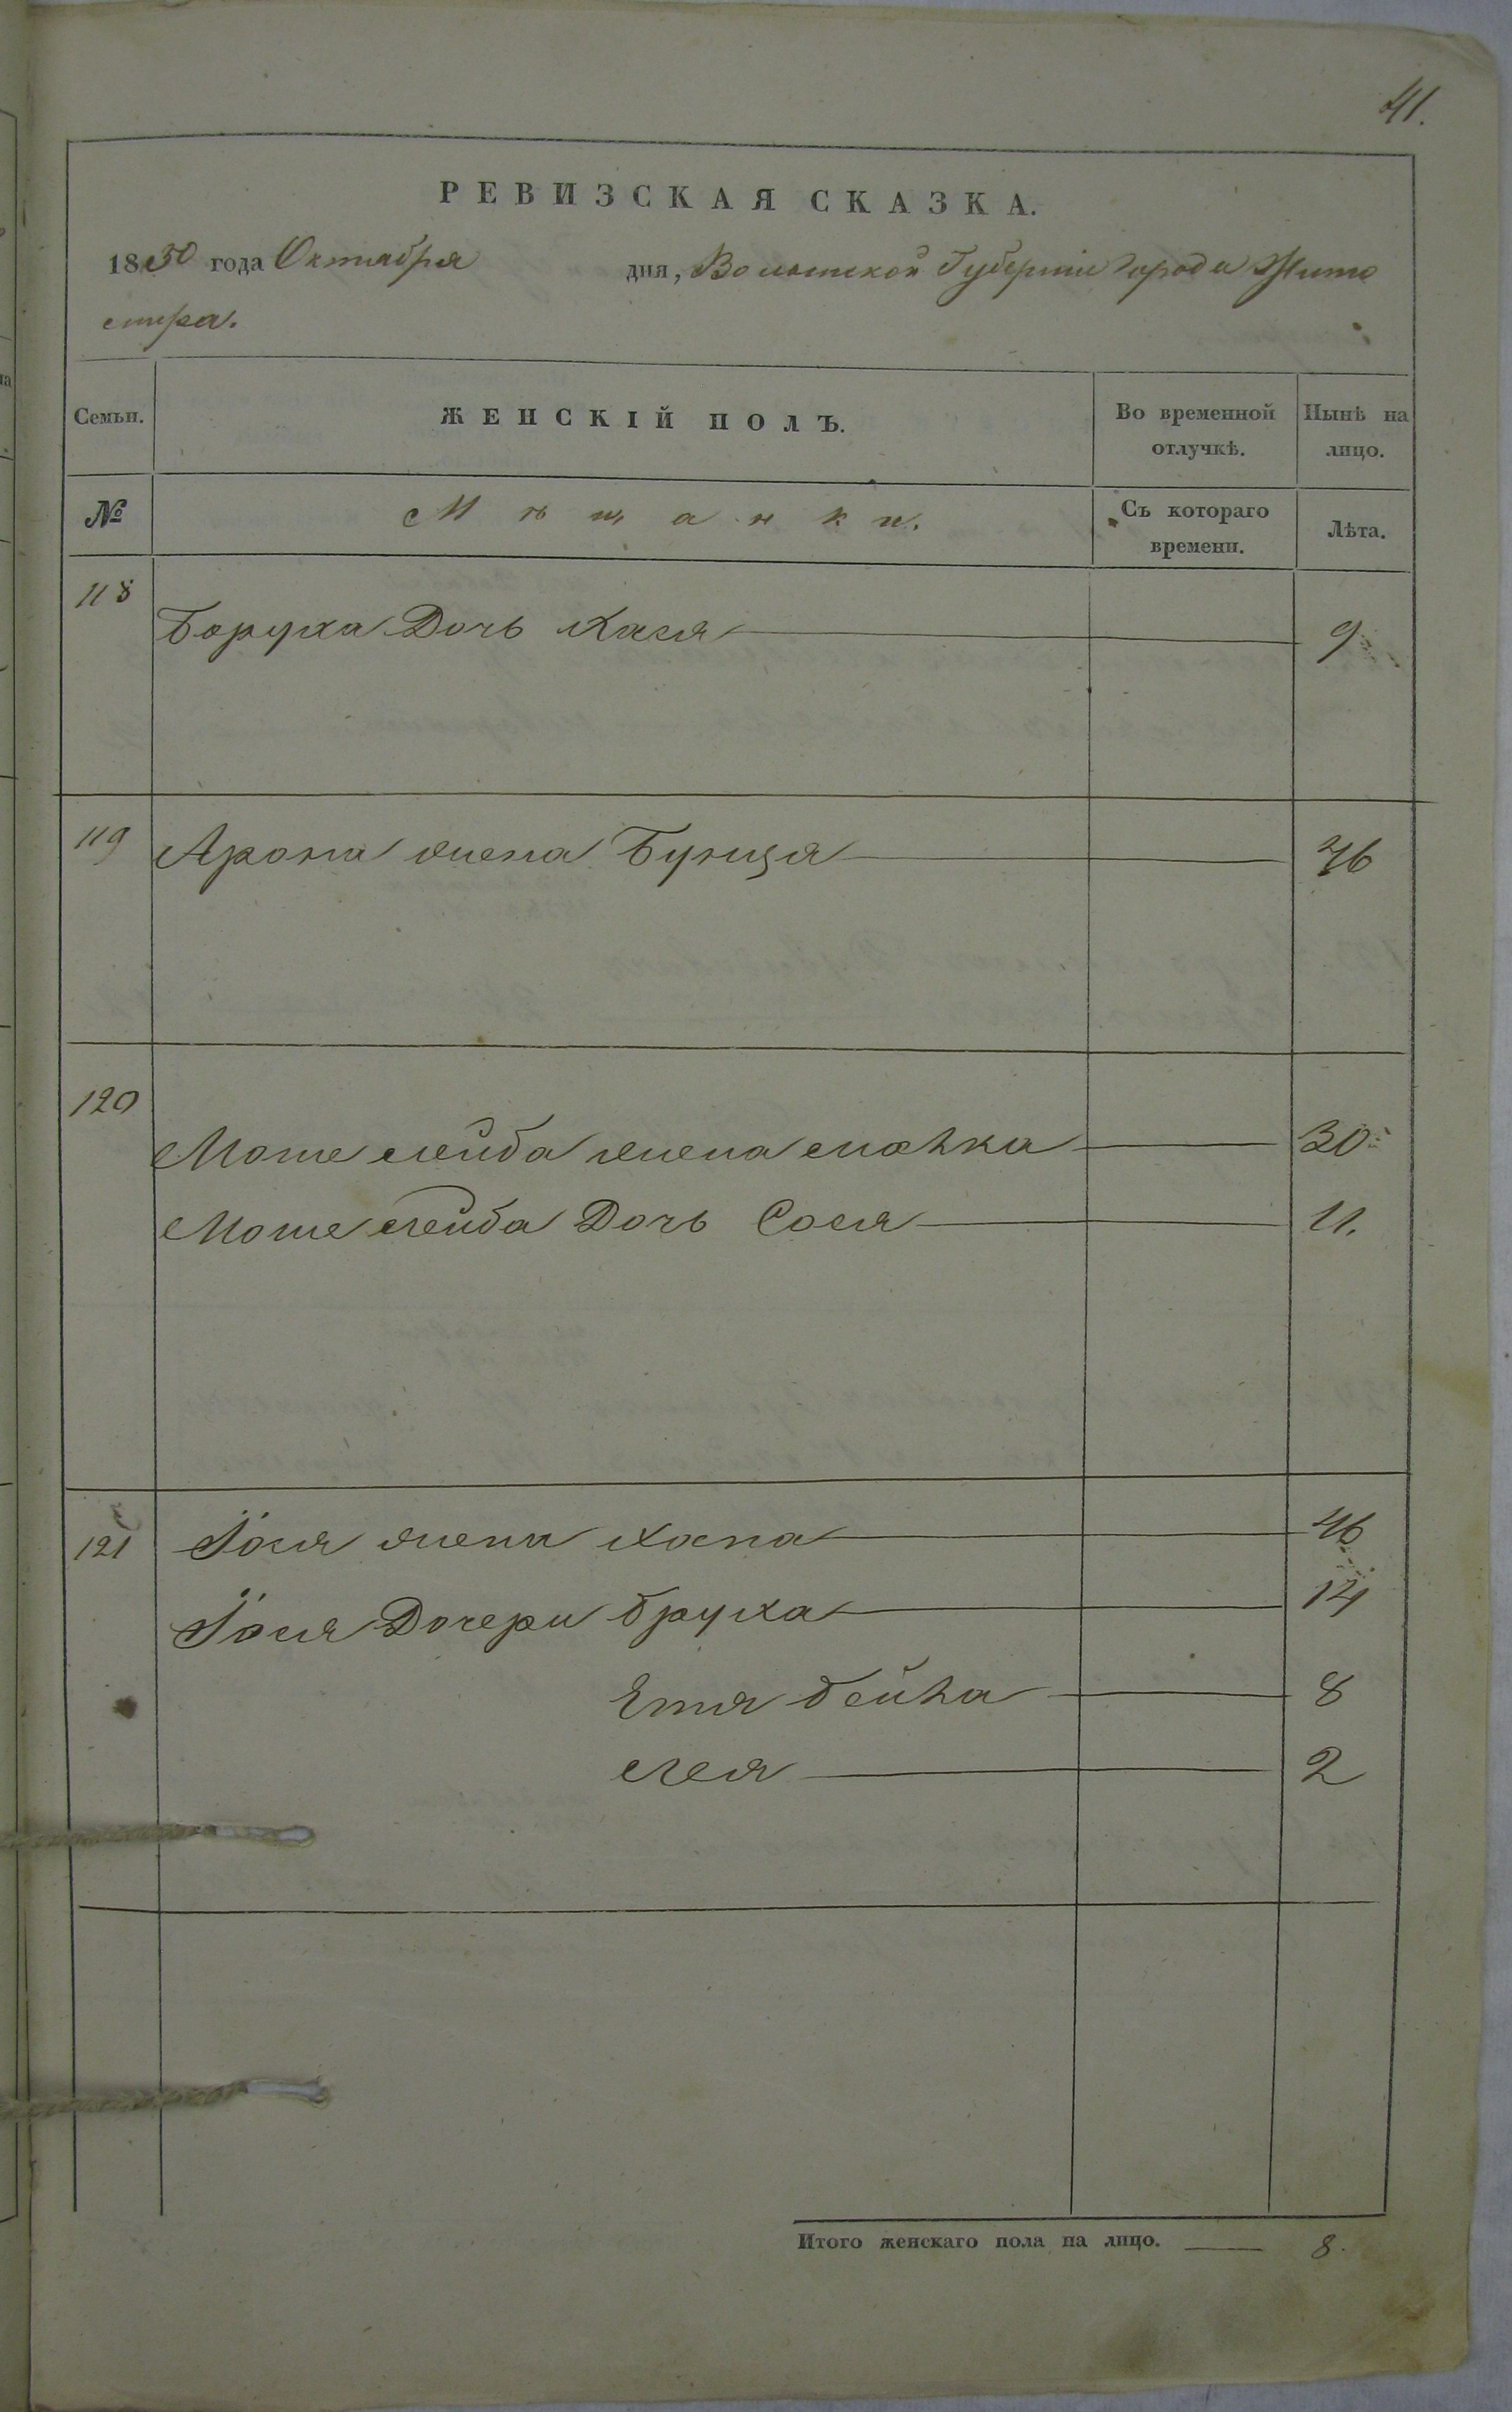 41.
РЕВИЗСКАЯ СКАЗКА.
1850 года Октября дня, Волынской Губерніи Города Жито
мира.
Семьи. ЖЕНСКІЙ ПОЛЪ. Во временной отлучкѣ. Нынѣ на лицо.
№ Мѣщанки. Съ котораго времени. Лѣта.
118
Боруха Дочь Хася 9
119 Арона жена Бунця 46
120
Мошелейба жена 30
Мошелейба Дочь Сося 11.
121 Іося жена Хана 46
Іося Дочери Бруха 14
Етя Бейла 8
Лея 2
Итого женскаго пола на лицо. 8.